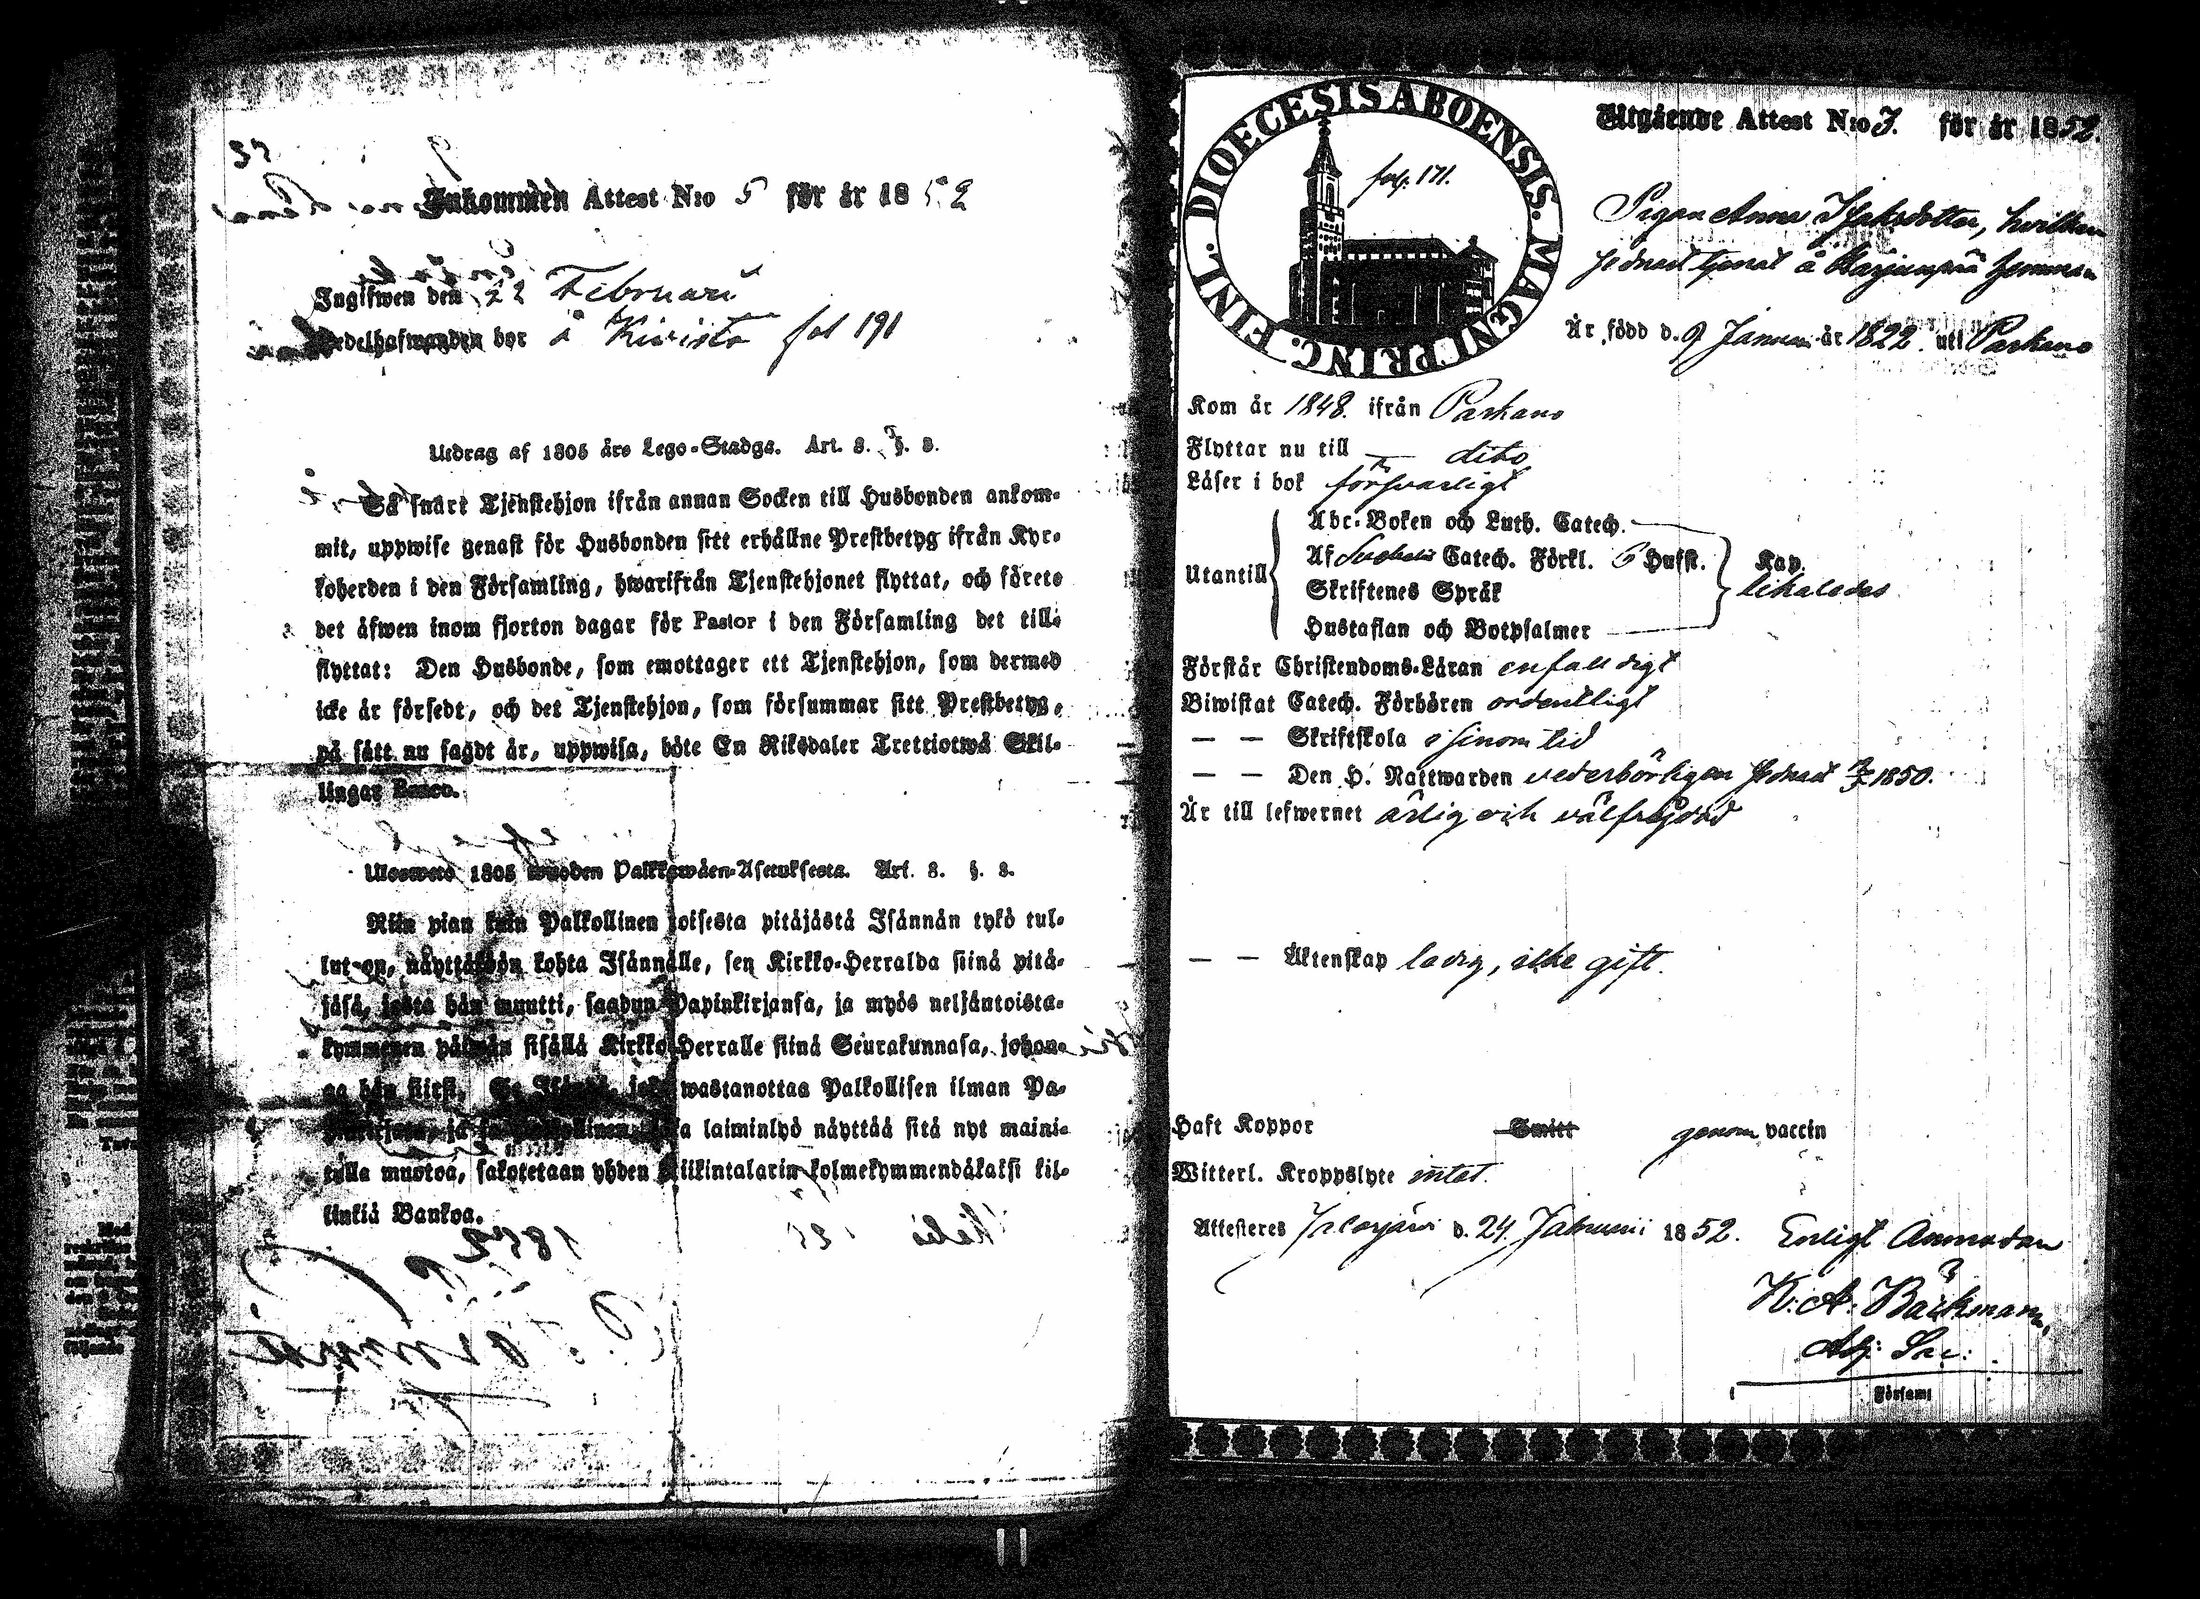 37
Inkommen Attest N:o 5 för år 1852
Ingifwen den 22 Februari
bor å Kivistö fol 191
Utdrag af 1805 års Lego-Stadga. Art. 8. §. 8.
Så snart Tjenstehjon ifrån annan Socken till Husbonden ankom-
mit, uppwise genast för Husbonden sitt erhållne Prestbetyg ifrån Kyr-
koherden i den Församling, hwarifrån Tjenstehjonet flyttat, och förete
det åfwen inom fjorton dagar för Pastor i den Församling det till-
flyttat: Den Husbonde, som emottager ett Tjenstehjon, som dermed
icke år försedt, och det Tjenstehjon, som försummar sitt Prestbetyg,
på sått nu sagdt år, uppwisa, böte En Riksdaler Trettiotwå Skil-
lingar Banco.
Ulosweto 1805 wuoden Palkkawåen-Asetuksesta. Art. 8. §. 8.
Niin pian kuin Palkollinen toisesta pitåjåstå Isånnån tykö tul-
lut on, nåyttåköön kohta Isånnålle, sen Kirkko-Herralda siinå pitå-
jåså, josta hån muutti, saadun Papinkirjansa, ja myös neljåntoista-
kymmenen påiwån sisållå Kirkko-Herralle siinå Seurakunnasa, johon-
ga hån siirsi. Se Isåntå, joka wastanottaa Palkollisen ilman Pa-
laiminlyö nåyttåå sitå nyt maini-
tulla muotoa, sakotetaan yhden Riikintalarin kolmekymmendåkaksi kil-
linkiå Bankoa.
DIOECESIS ABOENSIS. MAGNI PRINC. FINL.
fol. 171.
Utgående Attest N:o 7. för år 1852.
Pigan Anna Isaksdotter, hvilken
sednast tjenat å Harjunpää hemman
År född d. 9 Januari år 1822. uti Parkano
Kom år 1848. ifrån Parkano
Flyttar nu till — dito
Låser i bok försvarligt
Utantill
Abc-Boken och Luth. Catech.
Af Svebelii Catech. Förkl. 6 Hufst. Kap.
Skriftenes Språk likaledes
Hustaflan och Botpsalmer
Förstår Christendoms-Låran enfaldigt
Biwistat Catech. Förhören ordentligt
— — Skriftskola i sinom tid
— — Den H. Nattwarden vederbörligen sednast 1850.
År till lefwernet ärlig och välfrejdad
— — Åktenskap ledig, icke gift.
Haft Koppor Smitt genom vaccin
Witterl. Kroppslyte intet.
Attesteras Jalasjärvi d. 24. Januarii 1852. Enligt Anmodan
K: A: Bäckman,
Adj: Sac:
Församl